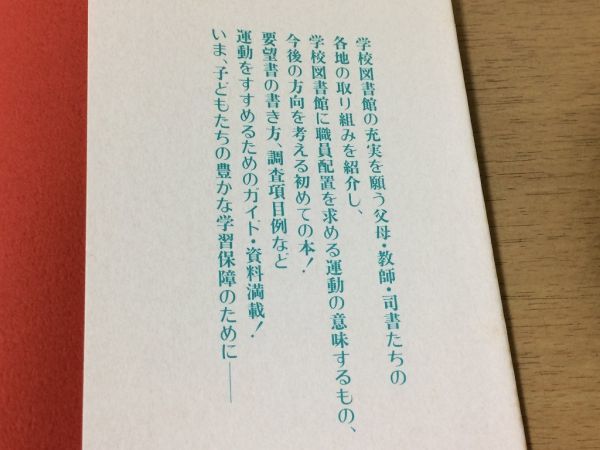 学校図書館の充実を願う父母・教師・司書たちの
各地の取り組みを紹介し、
学校図書館に職員配置を求める運動の意味するもの、
今後の方向を考える初めての本！
要望書の書き方、調査項目例など
運動をすすめるためのガイド・資料満載！
いま、子どもたちの豊かな学習保障のために――